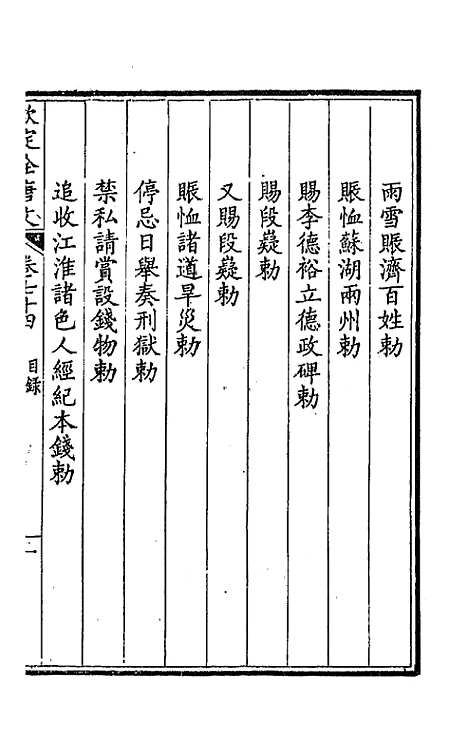 雨雪賑濟百姓勅
賑恤蘇湖兩州勅
賜李德裕立德政碑勅
賜段嶷勅
又賜段嶷勅
賑恤諸道旱災勅
停忌日舉奏刑獄勅
禁私請賞設錢物勅
追收江淮諸色人經紀本錢勅
欽定全唐文 卷七十四 目録